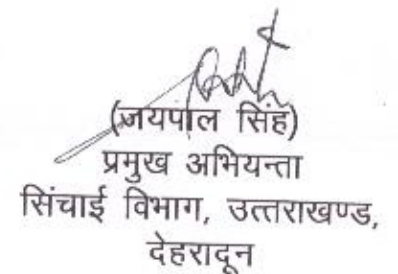 (जयपाल सिंह)
प्रमुख अभियन्ता
सिंचाई विभाग, उत्तराखण्ड,
देहरादून